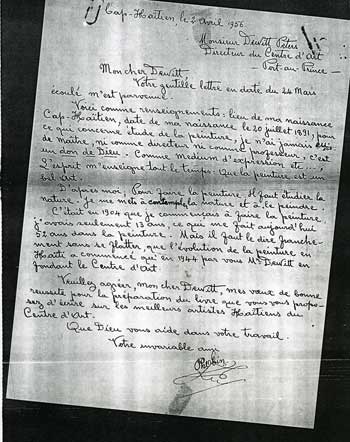 Cap-Haïtien le 2 Avril 1956.
Monsieur Dewitt Peters
Directeur du Centre d'Art
Port-au-Prince -
Mon cher Dewitt
Votre gentille lettre en date du 24 Mars
écoulé m'est parvenue.
Voici comme renseignements: lieu de ma naissance
Cap-Haïtien, date de ma naissance le 20 juillet 1891, pour
ce que concerne étude de la peinture, je n'ai jamais
de maître, ni comme directeur ni comme professeur, c'est
un don de Dieu. Comme medium d'expression etc...,
l'esprit m'enseigne tout le temps. Que la peinture est un
bel Art.
D'après moi: Pour faire la peinture il faut étudier la
nature. Je me mets à contempler la nature et à le peindre.
C'était en 1904 que je commençais à faire la peinture,
j'avais seulement 13 ans, ce qui me fait aujourd'hui
52 ans dans la peinture. Mais il faut le dire franche-
ment sans se flatter, que l'évolution de la peinture en
Haïti a commencé qu'en 1944 par vous Mr Dewitt en
fondant le Centre d'Art.
Veuillez agréer, mon cher Dewitt, mes vœux de bonne
reussite pour la préparation du livre que vous vous propo-
sez d'écrire sur les meilleurs artistes Haïtiens du
Centre d'Art.
Que Dieu vous aide dans votre travail.
Votre invariable ami